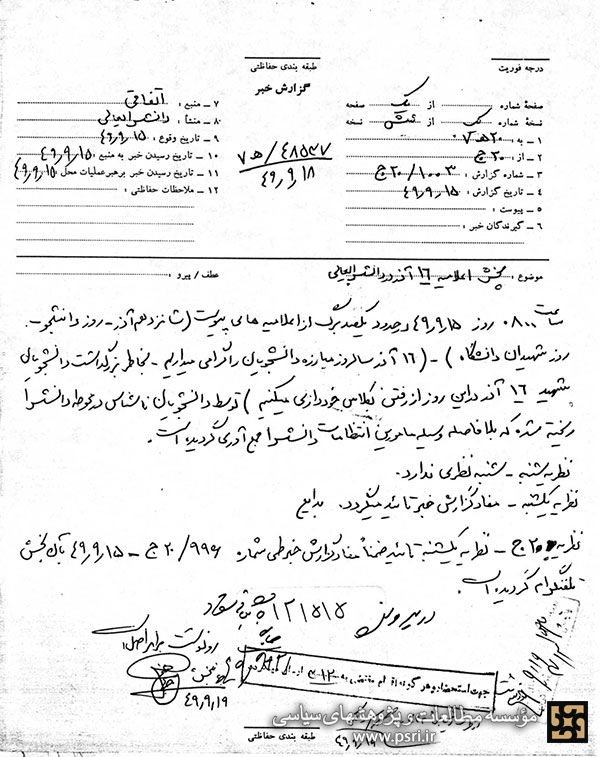 درجه فوریت
طبقه بندی حفاظتی
گزارش خبر
صفحه شماره : یک از یک صفحه
نسخه شماره : یک از شش نسخه
۱ ـ به : ۲۰ ه‍ ۷
۲ ـ از : ۲۰ ج
۳ ـ شماره گزارش : ۱۰۰۳/ ۲۰ ج
۴ ـ تاریخ گزارش : ۴۹٫۹٫۱۵
۵ ـ پیوست :
۶ ـ گیرندگان خبر :
۴۸۵۳۷/ ه‍ ۷
۴۹٫۹٫۱۸
۷ ـ منبع : اتفاقی
۸ ـ منشأ : دانشسرایعالی
۹ ـ تاریخ وقوع : ۴۹٫۹٫۱۵
۱۰ ـ تاریخ رسیدن خبر به منبع : ۴۹٫۹٫۱۵
۱۱ ـ تاریخ رسیدن خبر برهبر عملیات محل : ۴۹٫۹٫۱۵
۱۲ ـ ملاحظات حفاظتی :
موضوع : پخش اعلامیه ۱۶ آذر در دانشسرایعالی
عطف / پیرو :
ساعت ۰۸۰۰ روز ۴۹٫۹٫۱۵ حدود یکصد برگ از اعلامیه های پیوست (شانزدهم آذر - روز دانشجو -
روز شهیدان دانشگاه) - (۱۶ آذر سالروز مبارزه دانشجویان را گرامی میداریم - بخاطر بزرگداشت دانشجویان
شهید ۱۶ آذر در این روز از رفتن بکلاس خودداری میکنیم) توسط دانشجویان ناشناس در محوطه دانشسرا
ریخته شده که بلافاصله وسیله مامورین انتظامات دانشسرا جمع آوری گردیده است.
نظریه شنبه - شنبه نظری ندارد.
نظریه یکشنبه - مفاد گزارش خبر تائید میگردد.
نظریه ۲۰ ج - نظریه یکشنبه تائید ضمناً مفاد گزارش خبر طی شماره ۹۹۶/ ۲۰ ج - ۴۹٫۹٫۱۵ بآن بخش
تلفنگرام گردیده است.
رونوشت برابر اصل است
۴۹٫۹٫۱۹
جهت استحضار و هر گونه اقدام مقتضی به ۳۱۲ ارسال میگردد
مؤسسه مطالعات و پژوهشهای سیاسی
www.psri.ir
طبقه بندی حفاظتی